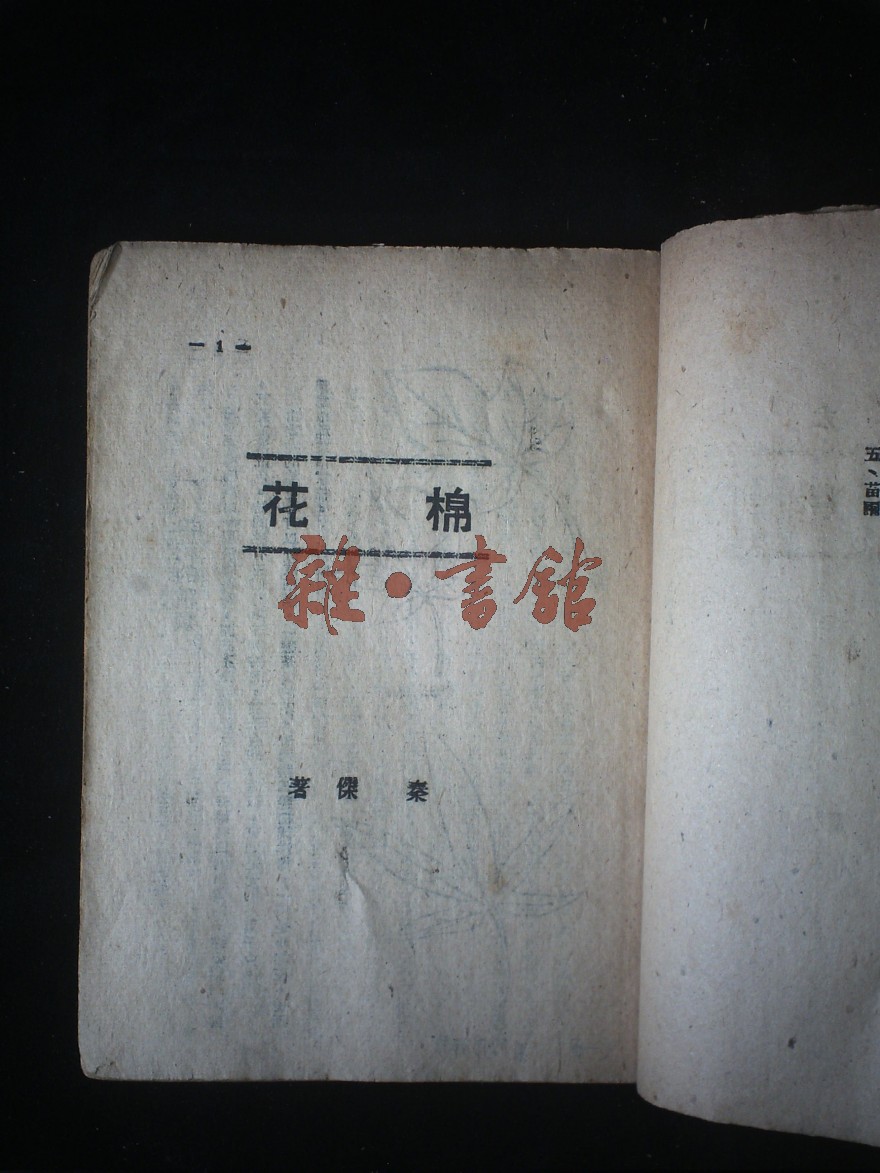 — 1 —
棉花
雜·書館
秦傑著
五、苗圃